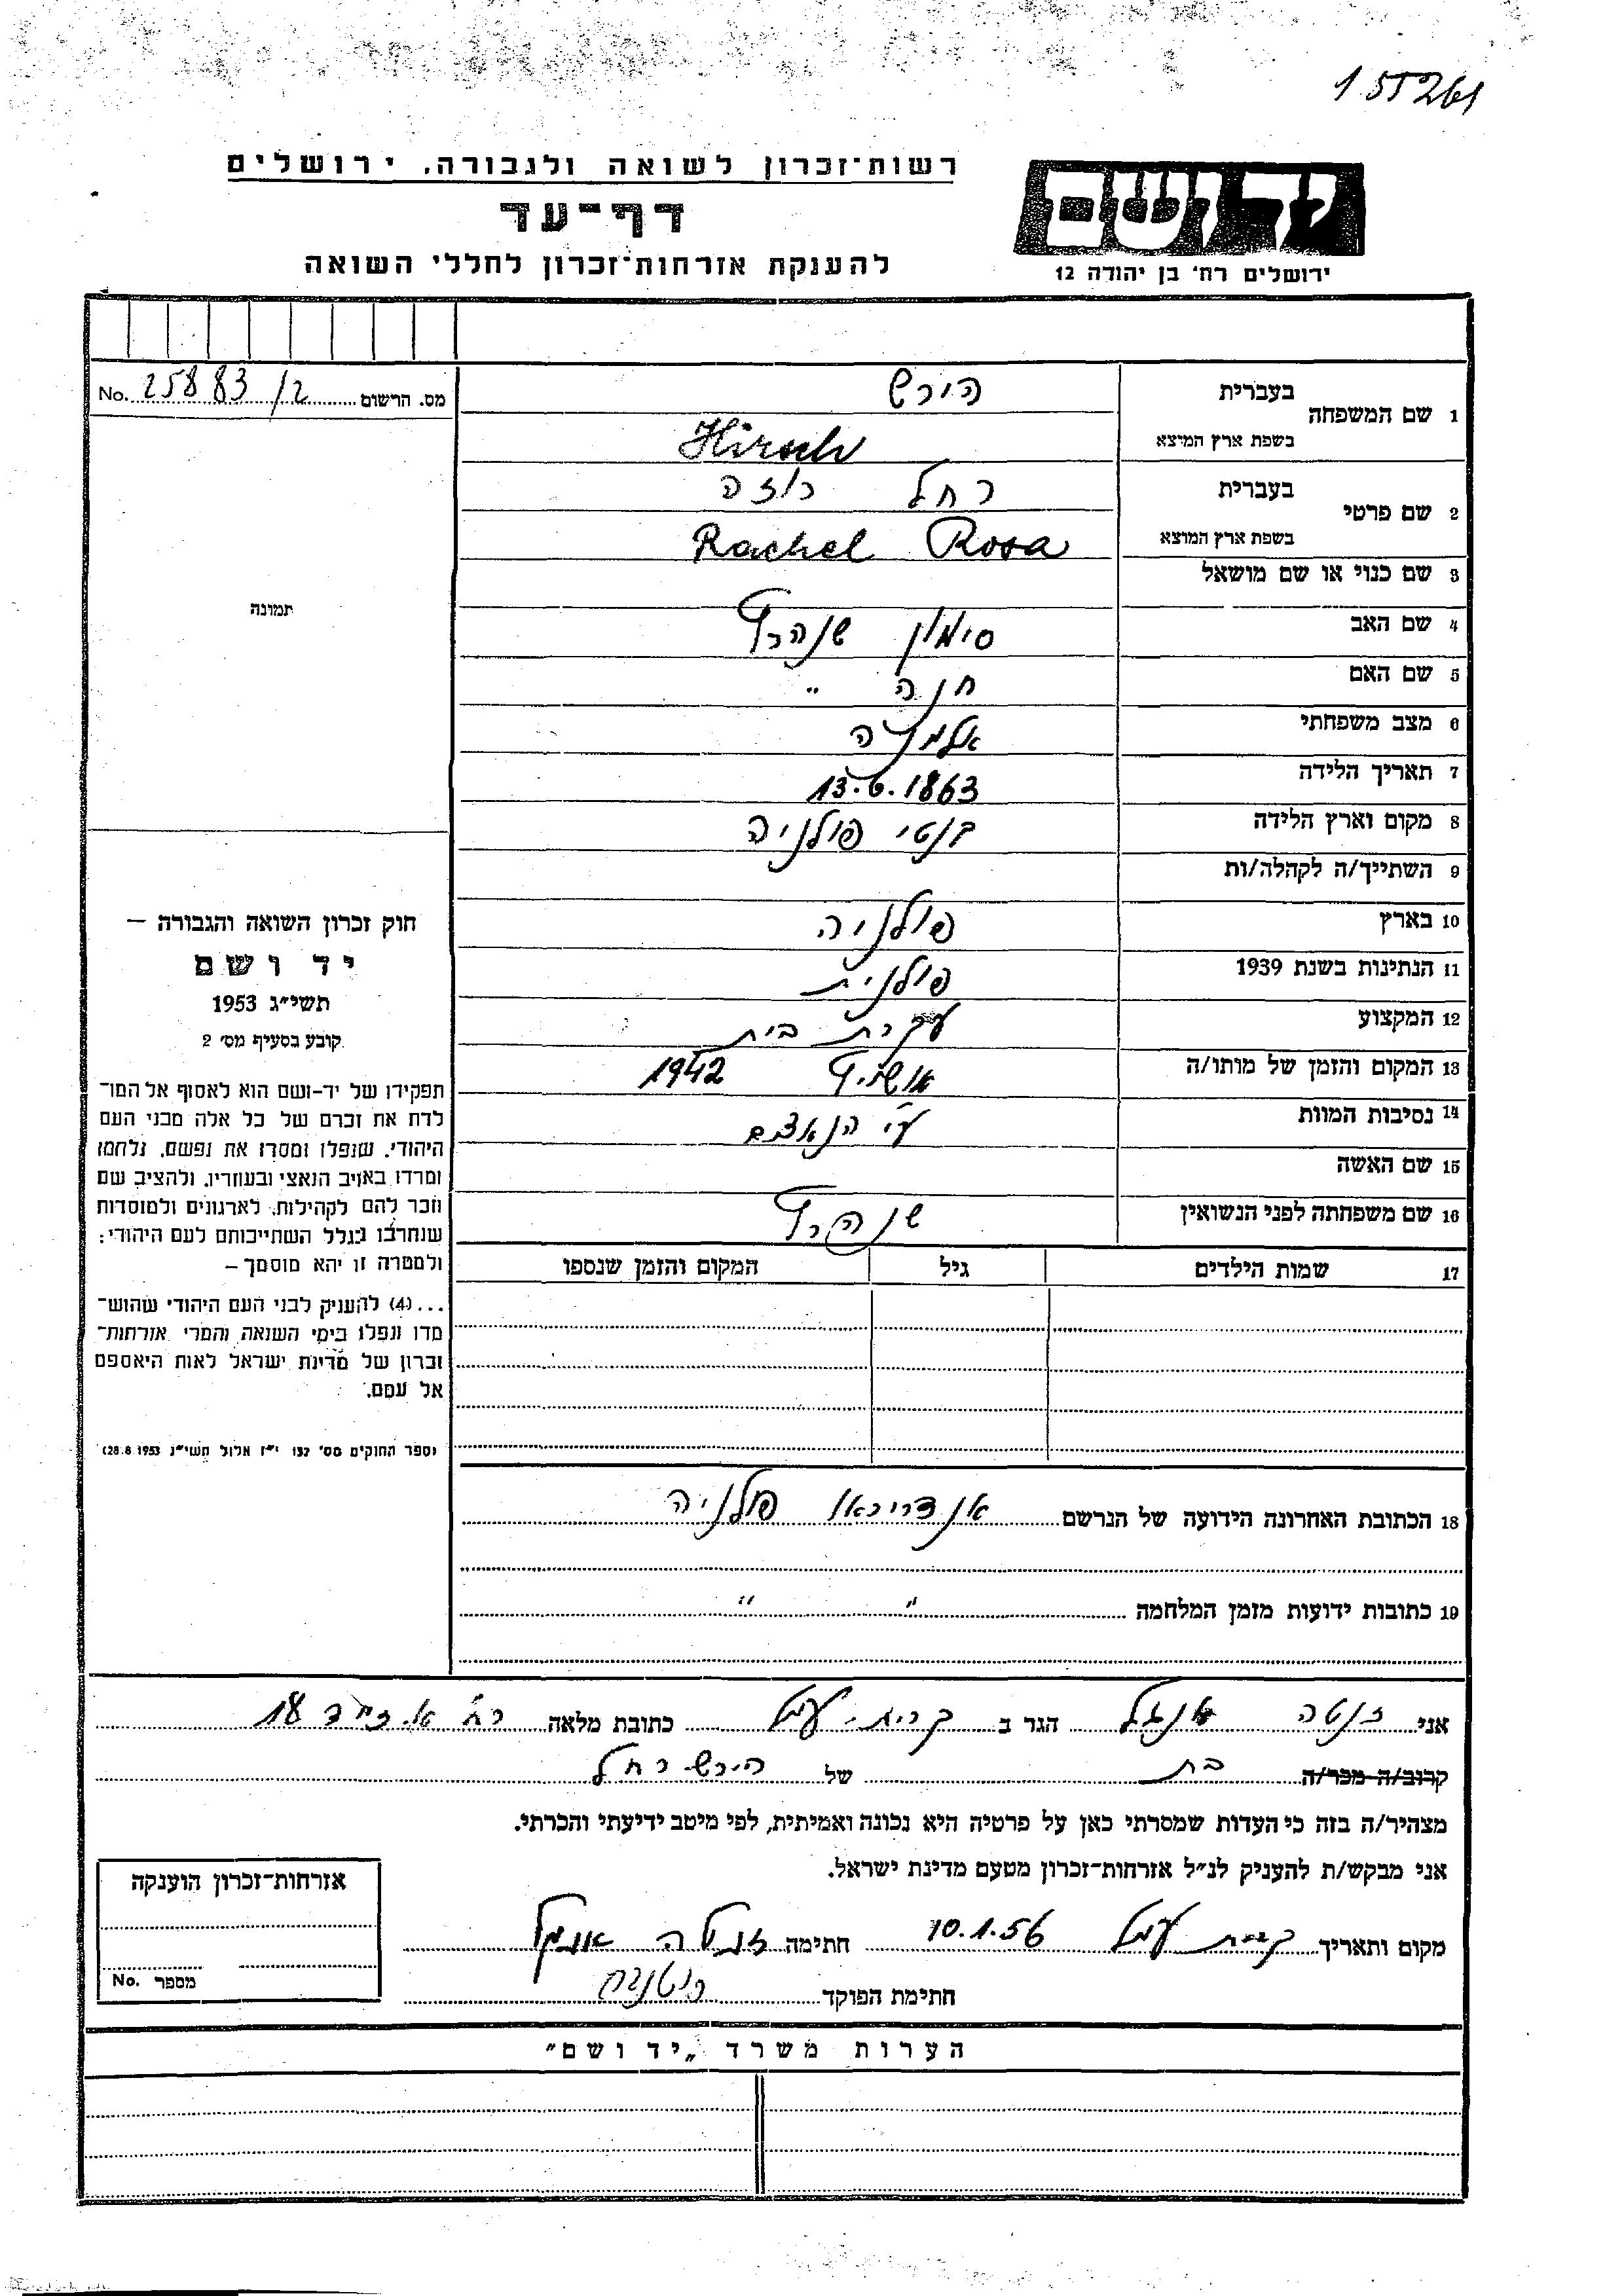 155261
רשות־זכרון לשואה ולגבורה, ירושלים
דף־עד
להענקת אזרחות־זכרון לחללי השואה
יד ושם
ירושלים רח' בן יהודה 12
מס. הרשום No. 25883/2
1 שם המשפחה
בעברית הירש
בשפת ארץ המוצא Hirsch
2 שם פרטי
בעברית רחל רוזה
בשפת ארץ המוצא Rachel Rosa
3 שם כנוי או שם מושאל
4 שם האב סימון שנהרף
5 שם האם חנה "
6 מצב משפחתי אלמנה
7 תאריך הלידה 13.6.1863
8 מקום וארץ הלידה פולניה
9 השתייך/ה לקהלה/ות
10 בארץ פולניה
11 הנתינות בשנת 1939 פולנית
12 המקצוע עקרת בית
13 המקום והזמן של מותו/ה 1942
14 נסיבות המוות ע"י הנאצים
15 שם האשה
16 שם משפחתה לפני הנשואין שנהרף
17 שמות הילדים גיל המקום והזמן שנספו
תמונה
חוק זכרון השואה והגבורה –
יד ושם
תשי"ג 1953
קובע בסעיף מס' 2
תפקידו של יד-ושם הוא לאסוף אל המו־
לדת את זכרם של כל אלה מבני העם
היהודי, שנפלו ומסרו את נפשם, נלחמו
ומרדו באויב הנאצי ובעוזריו, ולהציב שם
וזכר להם לקהילות, לארגונים ולמוסדות
שנחרבו בגלל השתייכותם לעם היהודי;
ולמטרה זו יהא מוסמך –
...(4) להעניק לבני העם היהודי שהוש־
מדו ונפלו בימי השואה והמרי אזרחות־
זכרון של מדינת ישראל לאות היאספם
אל עמם.
(ספר החוקים מס' 132 י"ז אלול תשי"ג 28.8.1953)
18 הכתובת האחרונה הידועה של הנרשם אנדריכאו פולניה
19 כתובות ידועות מזמן המלחמה " "
אני אנגל הגר ב קרית-עמל כתובת מלאה רח' 18
קרוב/ה מכר/ה בת של הירש רחל
מצהיר/ה בזה כי העדות שמסרתי כאן על פרטיה היא נכונה ואמיתית, לפי מיטב ידיעתי והכרתי.
אני מבקש/ת להעניק לנ"ל אזרחות־זכרון מטעם מדינת ישראל.
מקום ותאריך קרית עמל 10.1.56 חתימה אנגל
חתימת הפוקד
אזרחות־זכרון הוענקה
מספר No.
הערות משרד „יד ושם"